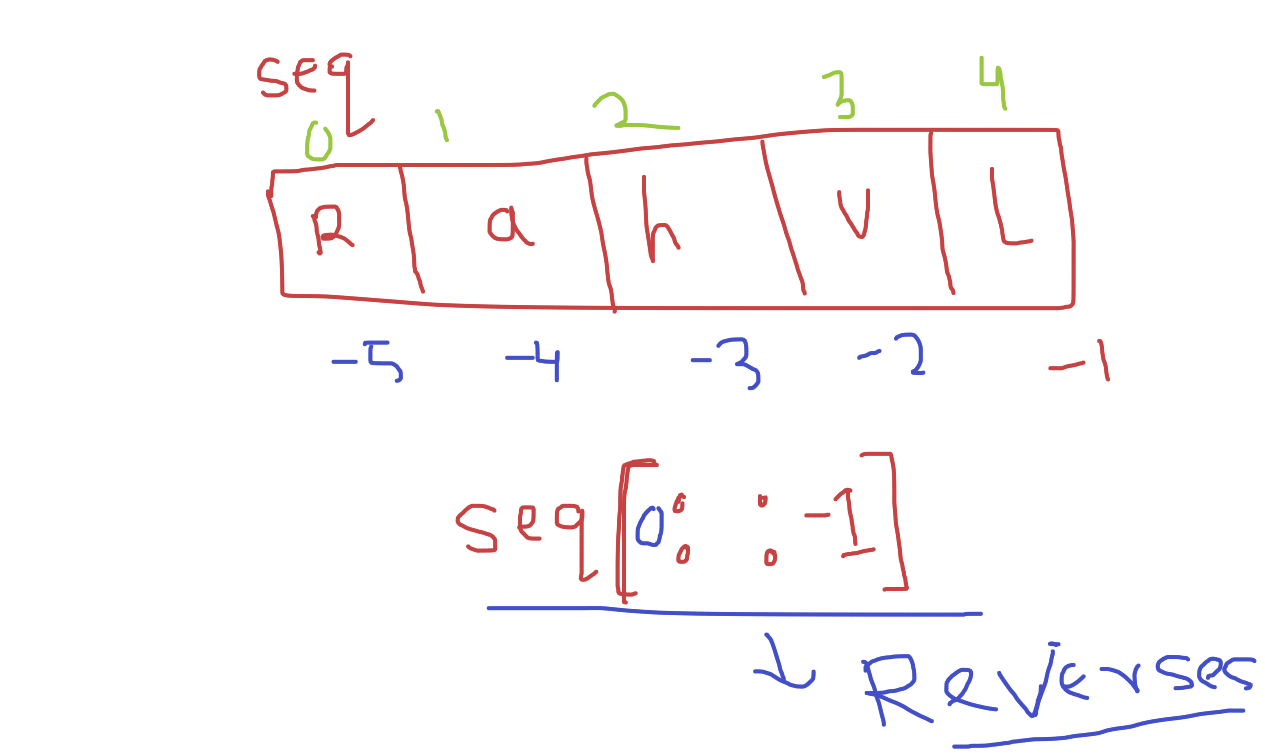 seq
0 1 2 3 4
R a h v L
-5 -4 -3 -2 -1
seq[0: :-1]
Reverses